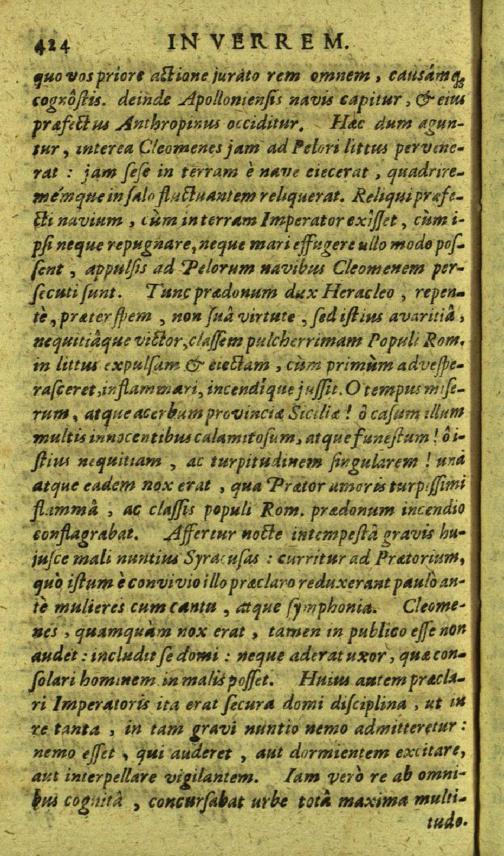 424 IN VERREM.
quo vos priore actione jurato rem omnem, causámq;
cognôstis. deinde Apolloniensis navis capitur, & eius
præfectus Anthropinus occiditur. Hæc dum agun-
tur, interea Cleomenes jam ad Pelori littus pervene-
rat: jam sese in terram è nave eiecerat, quadrire-
mémque in salo fluctuantem reliquerat. Reliqui præfe-
cti navium, cùm in terram Imperator exîsset, cùm i-
psi neque repugnare, neque mari effugere ullo modo pos-
sent, appulsis ad Pelorum navibus Cleomenem per-
secuti sunt. Tunc prædonum dux Heracleo, repen-
tè, præter spem, non suâ virtute, sed istius avaritiâ,
nequitiâque victor, classem pulcherrimam Populi Rom.
in littus expulsam & eiectam, cùm primùm advespe-
rasceret, inflammari, incendíque jussit. O tempus mise-
rum, atque acerbum provinciæ Siciliæ! ô casum illum
multis innocentibus calamitosum, atque funestum! ô i-
stius nequitiam, ac turpitudinem singularem! una
atque eadem nox erat, qua Prætor amoris turpissimi
flammâ, ac classis populi Rom. prædonum incendio
conflagrabat. Affertur nocte intempestâ gravis hu-
jusce mali nuntius Syracusas: curritur ad Prætorium,
quò istum è convivio illo præclaro reduxerant paulò an-
tè mulieres cum cantu, atque symphonia. Cleome-
nes, quamquàm nox erat, tamen in publico esse non
audet: includit se domi: neque aderat uxor, quæ con-
solari hominem in malis posset. Huius autem præcla-
ri Imperatoris ita erat secura domi disciplina, ut in
re tanta, in tam gravi nuntio nemo admitteretur:
nemo esset, qui auderet, aut dormientem excitare,
aut interpellare vigilantem. Iam verò re ab omni-
bus cognitâ, concursabat urbe totâ maxima multi-
tudo.